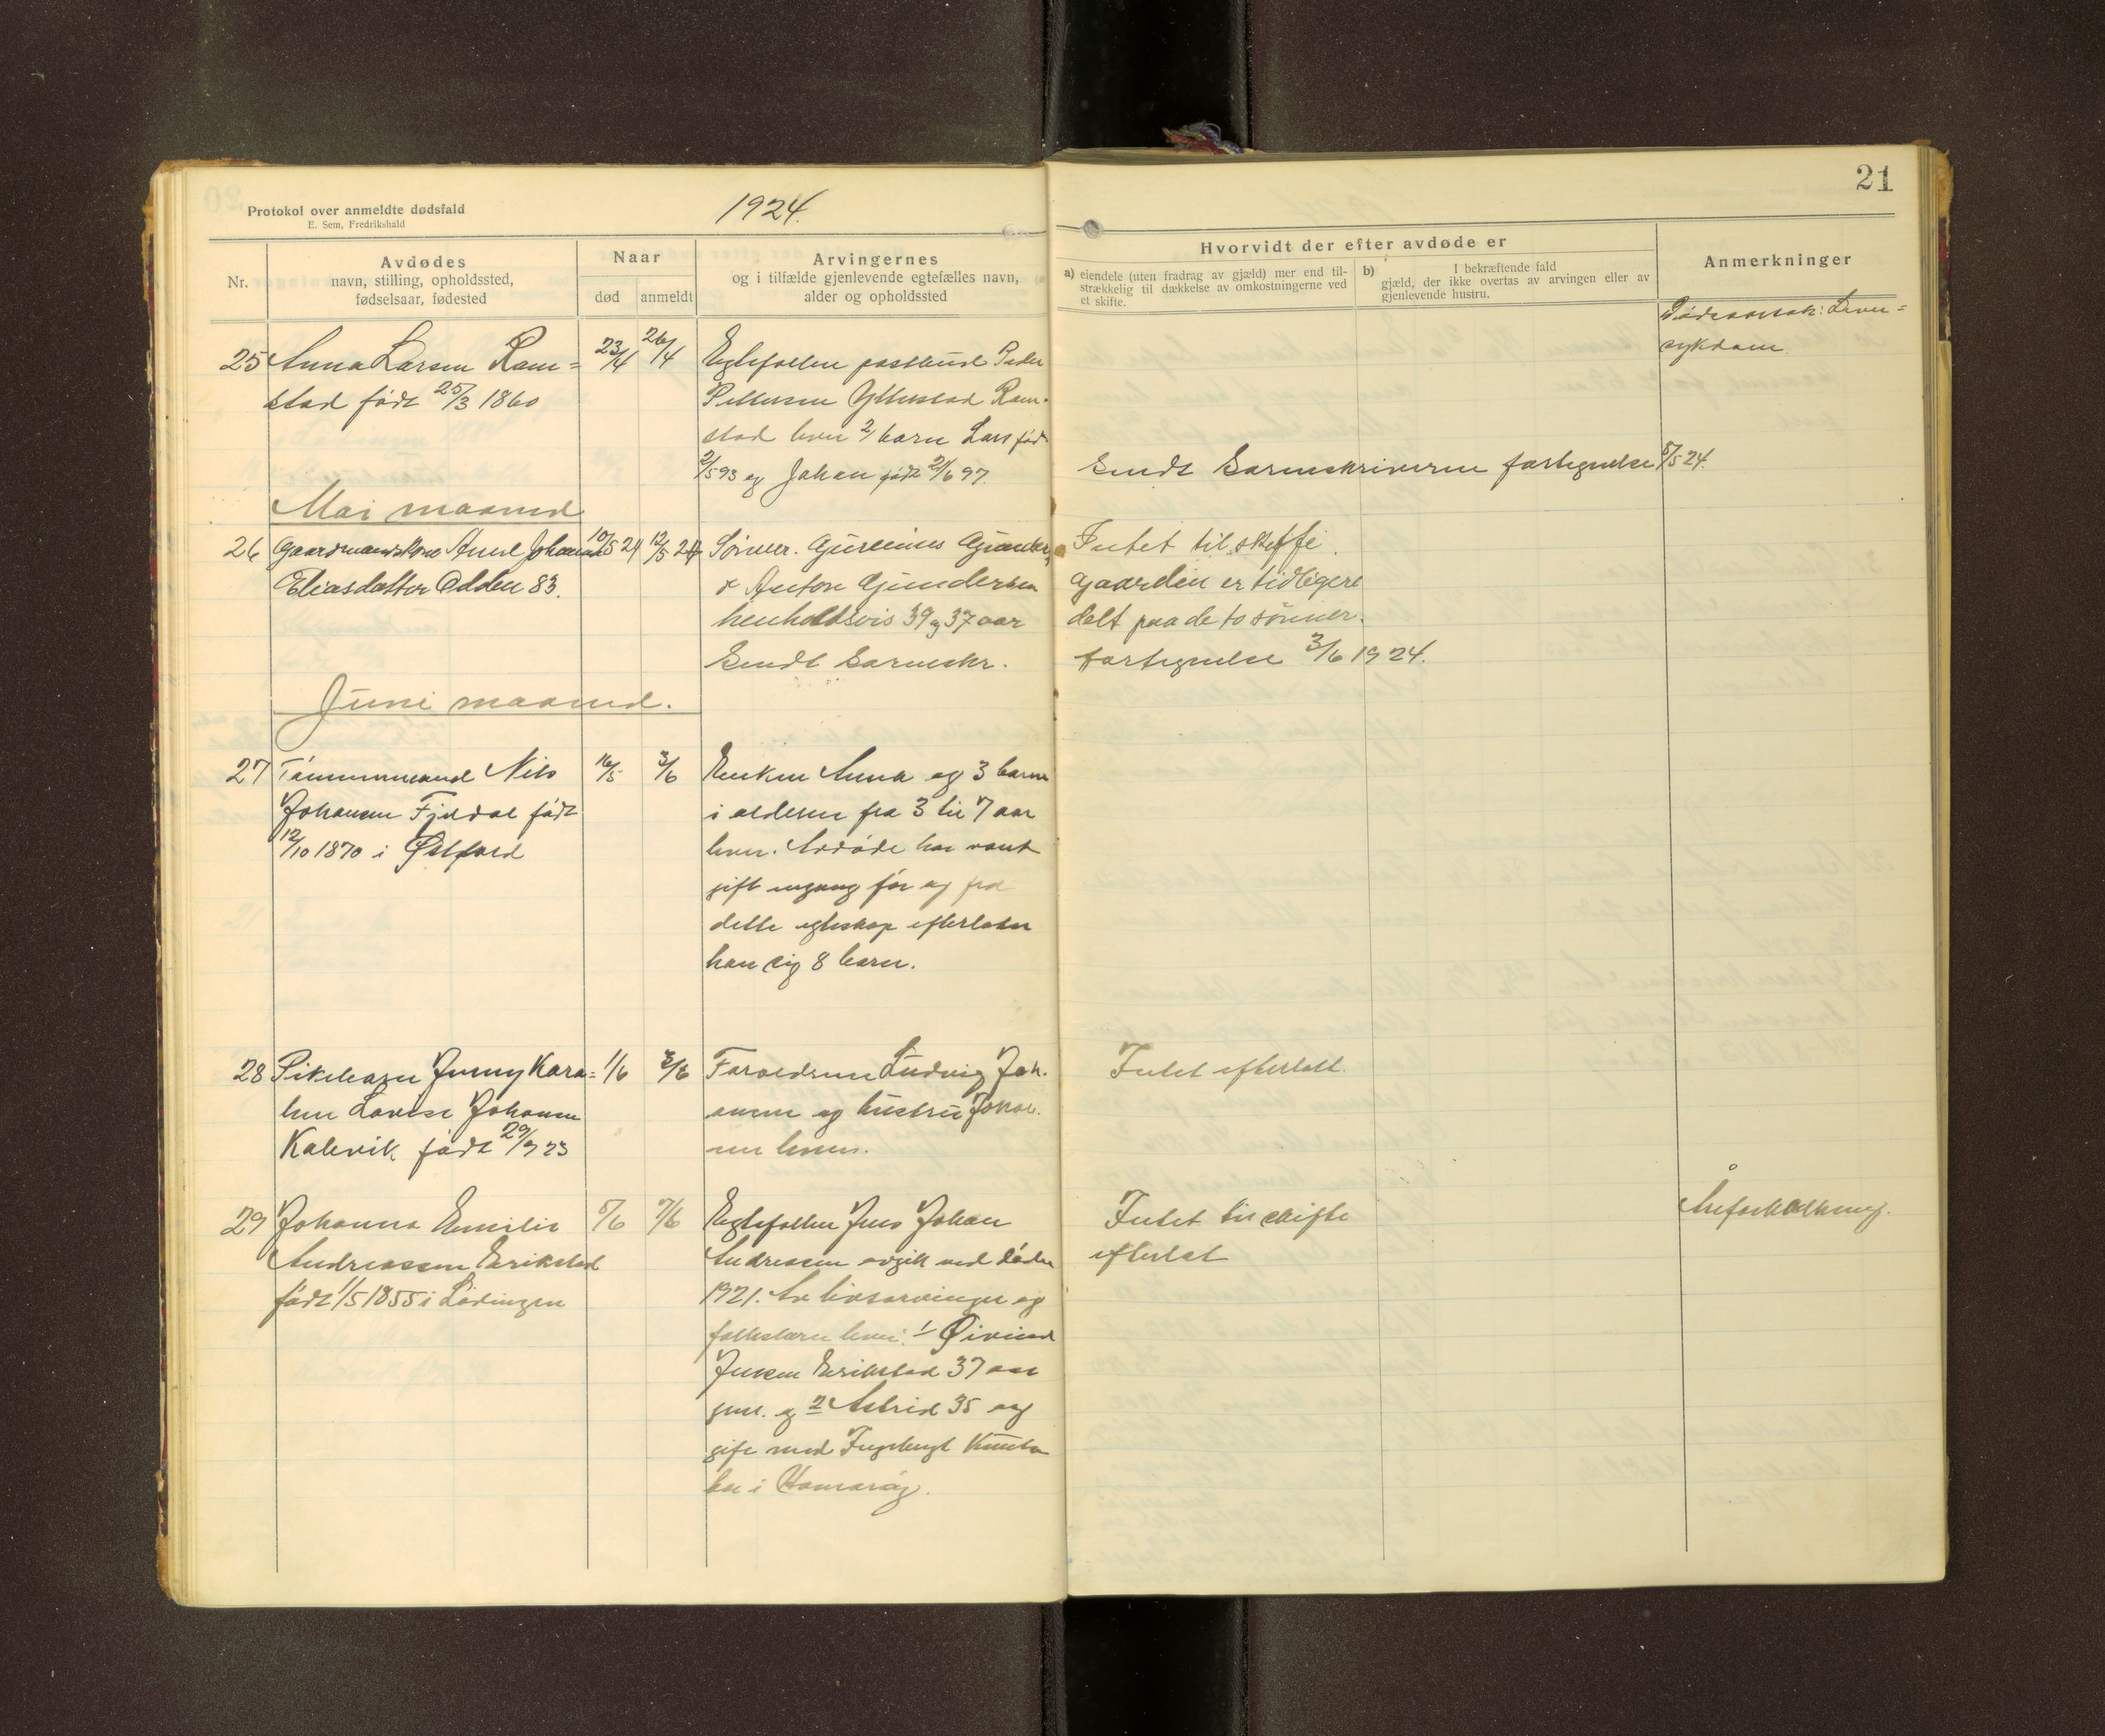 21
Protokol over anmeldte dødsfald
E. Sem, Fredrikshald
1924.
Nr.
Avdødes
navn, stilling, opholdssted,
fødselsaar, fødested
Naar
død
anmeldt
Arvingernes
og i tilfælde gjenlevende egtefælles navn,
alder og opholdssted
Hvorvidt der efter avdøde er
a) eiendele (uten fradrag av gjæld) mer end til-
strækkelig til dækkelse av omkostningerne ved
et skifte.
b) I bekræftende fald
gjæld, der ikke overtas av arvingen eller av
gjenlevende hustru.
Anmerkninger
25 Anna Larsen Ram=
stad født 25/3 1860
23/4
26/4
Egtefællen postbud Peder
Pettersen Ytterstad Ram-
stad lever 2 barn Lars född
2/5 93 og Johan født 2/6 97.
Dødsaarsak: Lever=
sykdom.
Sendt Sorenskriveren fortegnelse 5/5 24.
Mai maaned
26 Gaardmandskone Anne Johanna
Eliasdatter Odden 83.
10/5 24
12/5 24
Sönner. Gureinus Gunder
& Anton Gundersen
henholdsvis 39 og 37 aar
Sendt Sorenskr.
Intet til skifte.
Gaarden er tidligere
delt paa de to sönner.
fortegnelse 3/6 1924.
Juni maaned.
27 Tömmermand Nils
Johansen Fjeldal født
12/10 1870 i Østfold
16/5
3/6
Enken Anna og 3 barn
i alderen fra 3 til 7 aar
lever. Avdøde har vært
gift engang før og fra
dette egteskap efterlater
han sig 8 barn.
28 Pikebarn Jenny Kara=
line Lovise Johansen
Kalevik født 29/9 23
1/6
3/6
Foreldrene Ludvig Joh.
ansen og hustru Johan.
ne lever.
Intet efterlatt.
29 Johanna Emilie
Andreassen Erikstad
født 1/5 1855 i Lødingen
5/6
7/6
Egtefellen Jens Johan
Andreassen avgik ved døden
1921. Av livsarvinger og
fellesbarn lever: 1 Øivind
Jensen Erikstad 37 aar
gml. og 2 Astrid 35 og
gift med Ingebrigt Knuts
en i Hamarøy.
Intet til skifte
efterlat
Åreforkalkning.